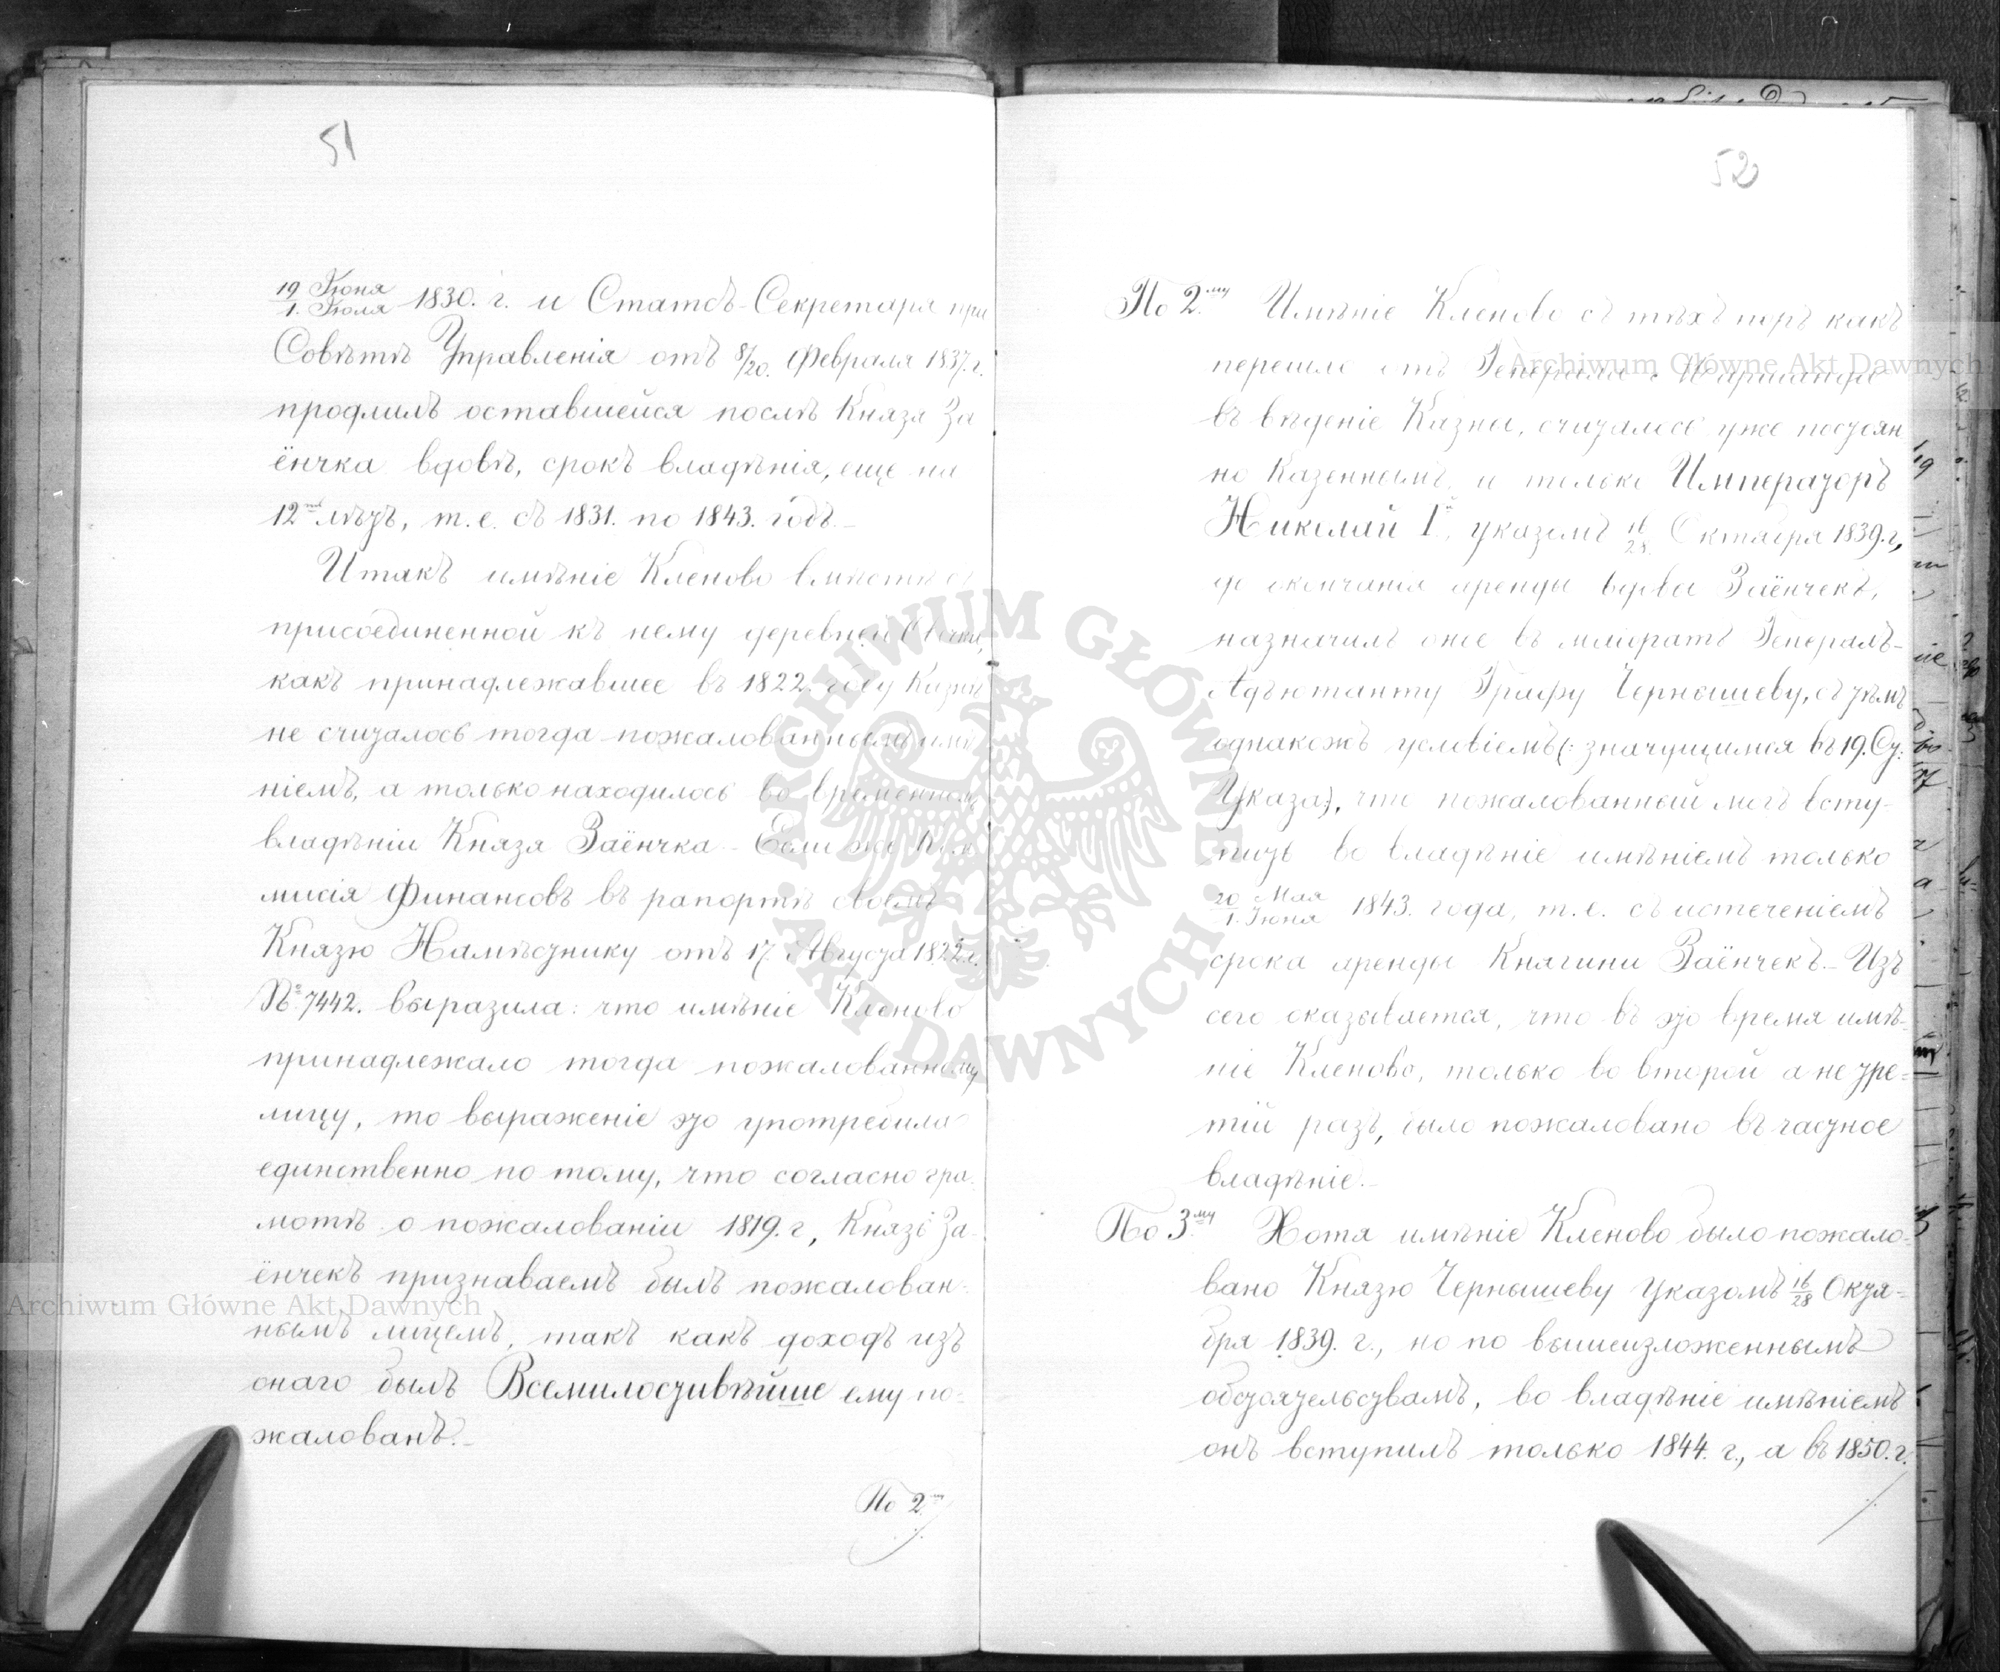 51
19 Іюня
1. Іюля 1830. г. и Статсъ-Секретаря при
Совѣтѣ Управленія отъ 8/20. Февраля 1837. г.
продлилъ оставшейся послѣ Князя За
ёнчка вдовѣ, срокъ владѣнія, еще на
12ть лѣтъ, т. е. съ 1831. по 1843. годъ.
Итакъ имѣніе Кленово вмѣстѣ съ
присоединенной къ нему деревней
какъ принадлежавшее въ 1822. году Казнѣ
не считалось тогда пожалованнымъ имѣ
ніемъ, а только находилось во временномъ
владѣніи Князя Заёнчка – Если же Ком
мисія Финансовъ въ рапортѣ своемъ
Князю Намѣстнику отъ 17. Августа 1822 г.
№ 7442. выразила: что имѣніе Кленово
принадлежало тогда пожалованному
лицу, то выраженіе это употребила
единственно по тому, что согласно гра-
мотѣ о пожалованіи 1819. г., Князь За-
ёнчекъ признаваемъ былъ пожалован-
нымъ лицемъ, такъ какъ доходъ изъ
онаго былъ Всемилостивѣйше ему по-
жалованъ.
По 2му
52
По 2.му Имѣніе Кленово съ тѣхъ поръ какъ
перешло отъ Генерала
въ вѣденіе Казны, считалось уже постоян
но Казеннымъ, и только Императоръ
Николай Iй, указомъ 16/28. Октября 1839. г.,
до окончанія аренды вдовы Заёнчекъ,
назначилъ оное въ маіоратъ Генералъ-
Адъютанту Графу Чернышеву, съ тѣмъ
однакожъ условіемъ (: значущимся въ 19. Ст.
Указа:), что пожалованный могъ всту-
пить во владѣніе имѣніемъ только
20 Мая
1. Іюня 1843. года, т. е. съ истеченіемъ
срока аренды Княгини Заёнчекъ. – Изъ
сего оказывается, что въ это время имѣ-
ніе Кленово, только во второй а не тре-
тій разъ, было пожаловано въ частное
владѣніе. –
По 3.му Хотя имѣніе Кленово было пожало-
вано Князю Чернышеву Указомъ 16/28 Октя-
бря 1839. г., но по вышеизложеннымъ
обстоятельствамъ, во владѣніе имѣніемъ
онъ вступилъ только 1844. г., а въ 1850. г.
Archiwum Główne Akt Dawnych
Archiwum Główne Akt Dawnych
ARCHIWUM GŁÓWNE AKT DAWNYCH